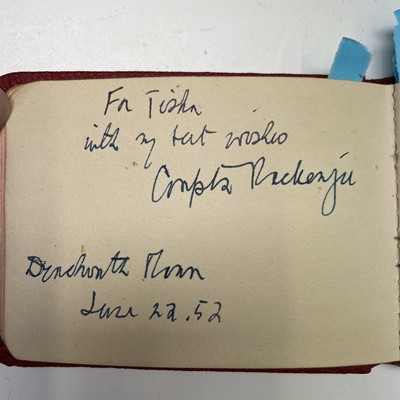 For Tisha
with my best wishes
Compton Mackenzie
Denchworth Manor
June 22.52